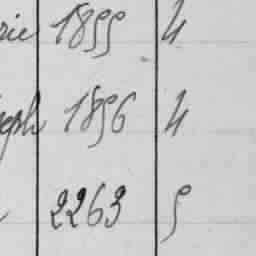 rie 1855 4
eph 1856 4
2263 5